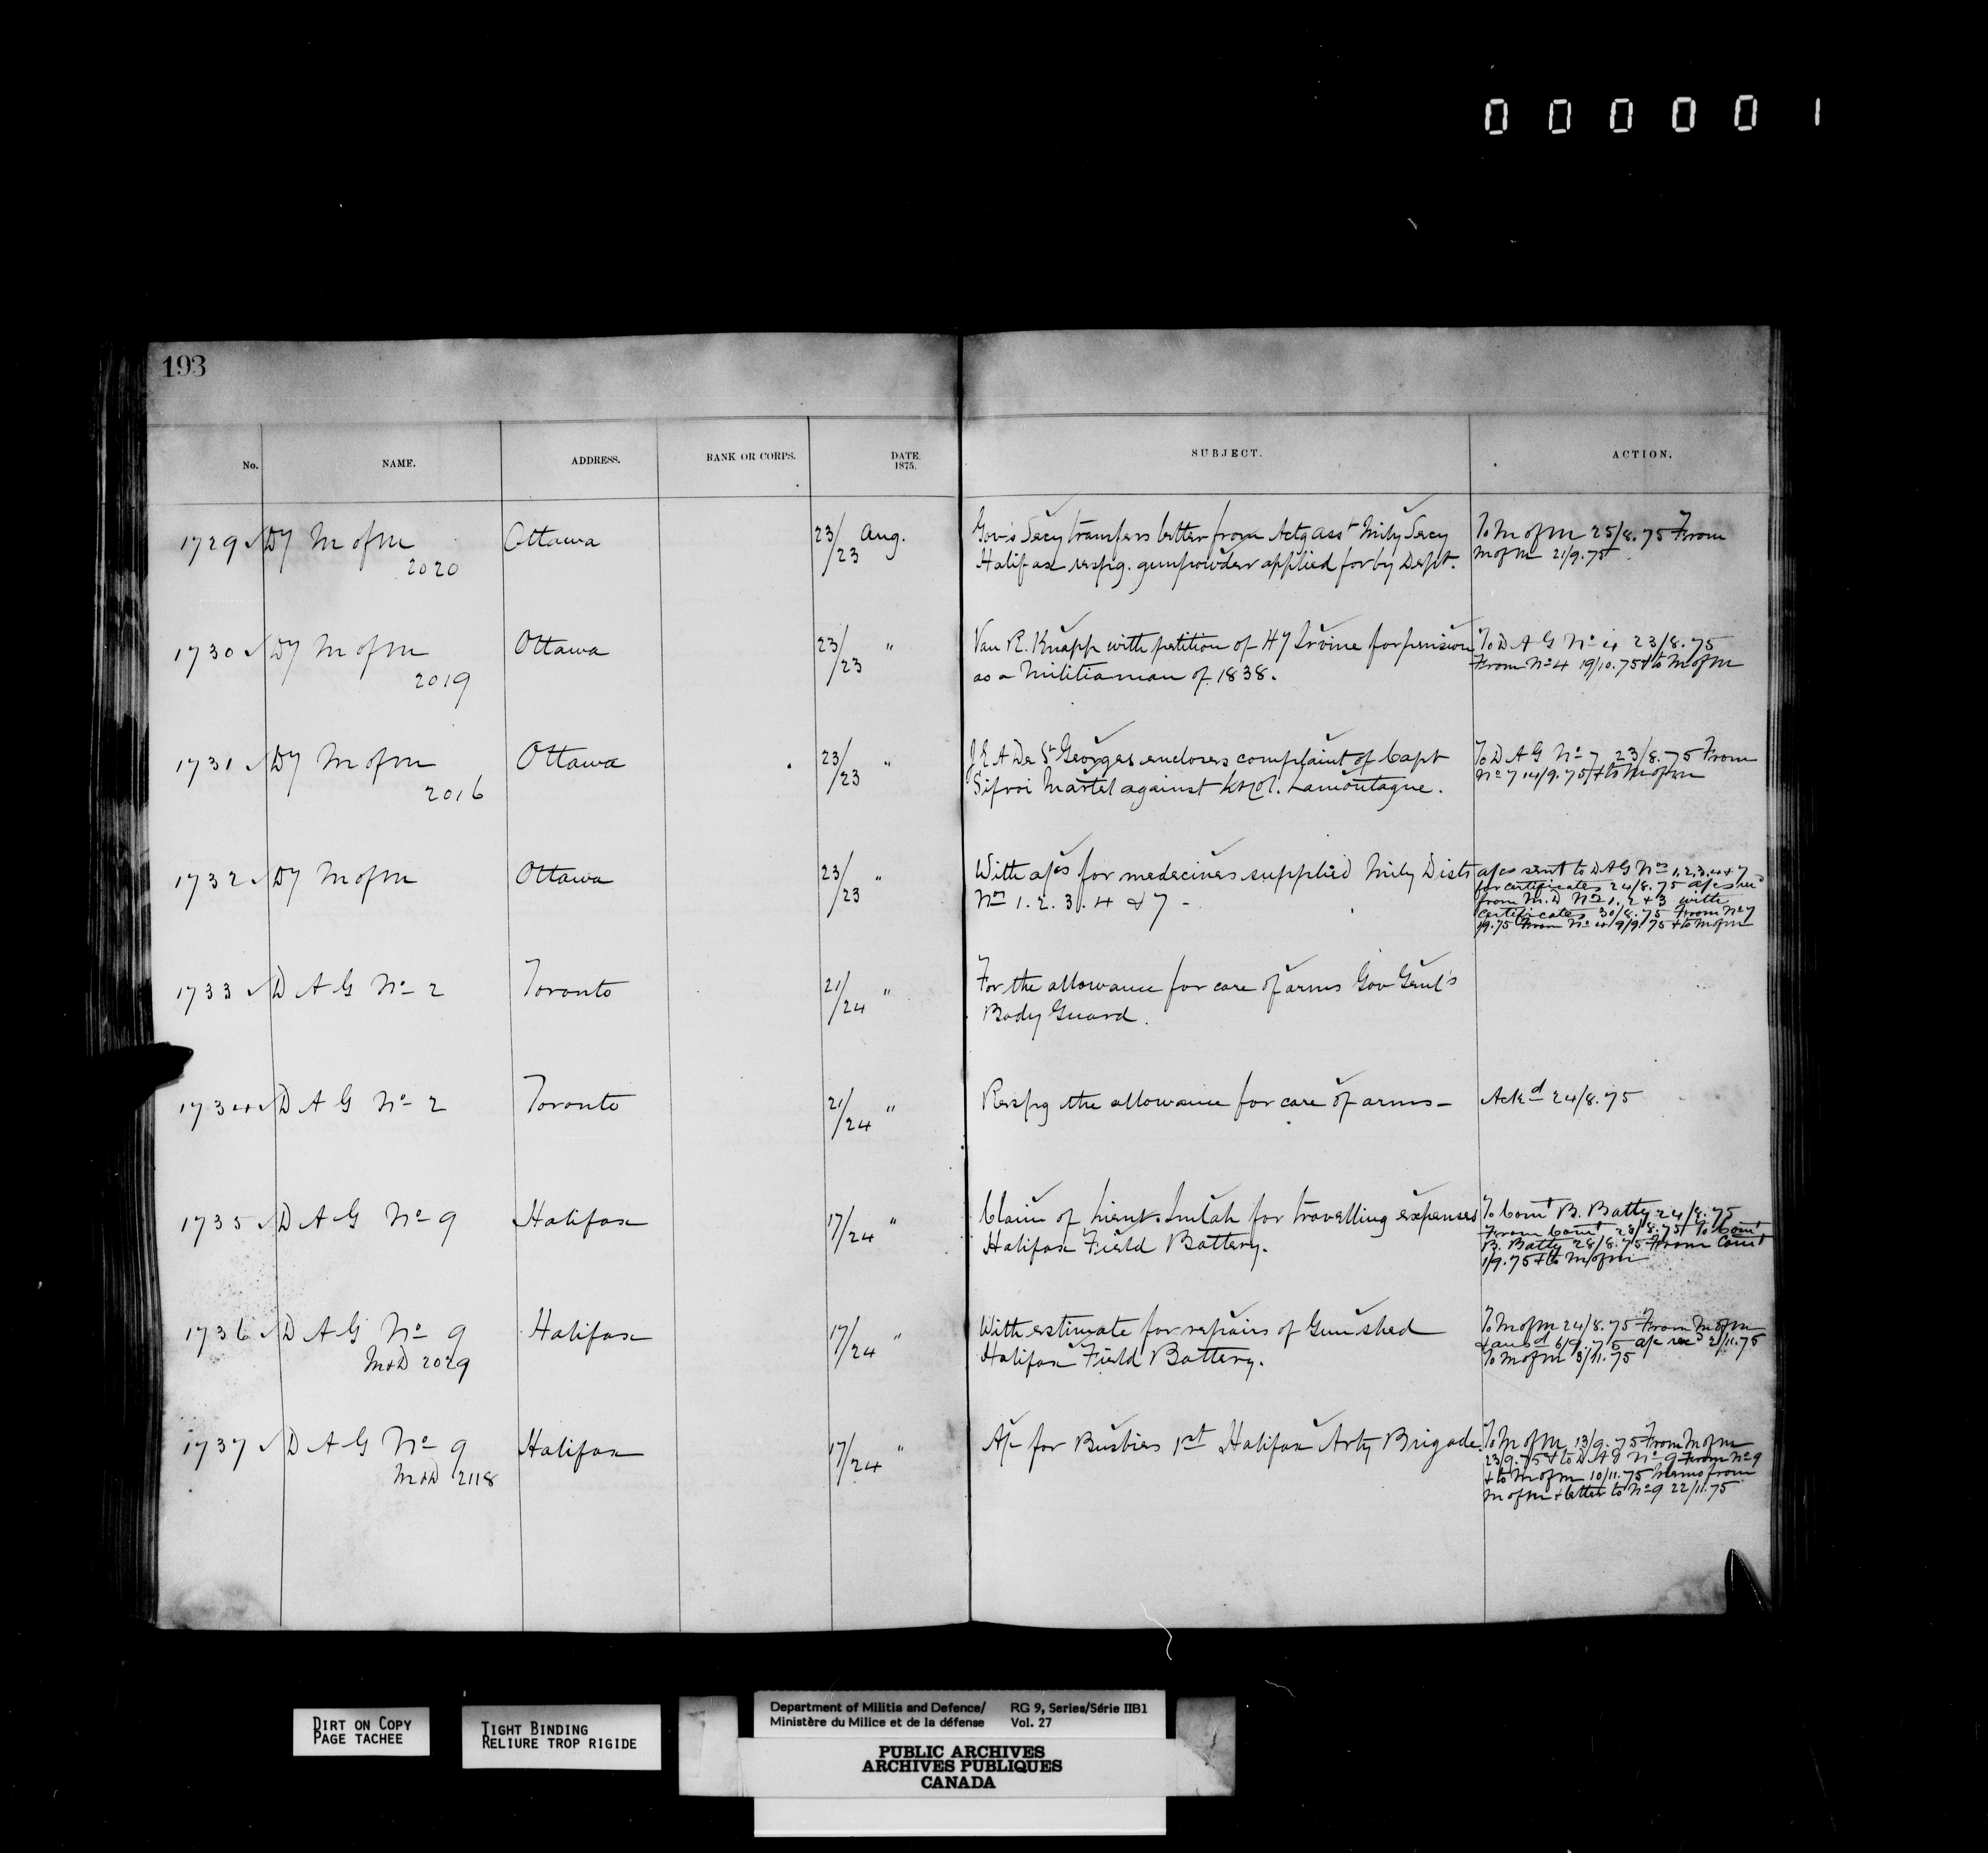 000001
193
No. NAME. ADDRESS. RANK OR CORPS. DATE. 1875. SUBJECT. ACTION.
1729 Dy M of M Ottawa 23/23 Aug. Gov's Secy transfers letter from Actg Asst Mily Secy To M of M 25/8.75 From
2020 Halifax respg. gunpowder applied for by Dept. M of M 21/9.75
1730 Dy M of M Ottawa 23/23 " Van R. Knapp with petition of Hy Irvine for pension To D A G No 4 23/8.75
2019 as a Militiaman of 1838. From No 4 19/10.75 & to M of M
1731 Dy M of M Ottawa 23/23 " J E A De St Georges encloses complaint of Capt To D A G No 7 23/8.75 From
2016 Sifroi Martel against Lt Col. Lamontagne. No 7 14/9.75 & to M of M
1732 Dy M of M Ottawa 23/23 " With a/cs for medecines supplied Mily Dists a/cs sent to D A G Nos 1, 2, 3, 4 & 7
Nos 1. 2. 3. 4 & 7 - for certificates 24/8.75 a/cs recd
from M.D Nos 1, 2 & 3 with
certificates 30/8.75 From No 7
1/9.75 From No 4 9/9.75 & to M of M
1733 D A G No 2 Toronto 21/24 " For the allowance for care of arms Gov Genl's
Body Guard.
1734 D A G No 2 Toronto 21/24 " Respg the allowance for care of arms - Ackd 24/8.75
1735 D A G No 9 Halifax 17/24 " Claim of Lieut. for travelling expenses To Comt B. Batty 24/8.75
Halifax Field Battery. From Comt 28/8.75 To Comt
B. Batty 28/8.75 From Comt
1/9.75 & to M of M
1736 D A G No 9 Halifax 17/24 " With estimate for repairs of Gun shed To M of M 24/8.75 From M of M
M & D 2029 Halifax Field Battery. & ansd 6/9.75 a/c recd 2/11.75
To M of M 3/11.75
1737 D A G No 9 Halifax 17/24 " A/c for Busbies 1st Halifax Arty Brigade. To M of M 13/9.75 From M of M
M & D 2118 23/9.75 & to D A G No 9 From No 9
& to M of M 10/11.75 Memo from
M of M & letter to No 9 22/11.75
DIRT ON COPY
PAGE TACHEE
TIGHT BINDING
RELIURE TROP RIGIDE
Department of Militia and Defence/ RG 9, Series/Série IIB1
Ministère du Milice et de la défense Vol. 27
PUBLIC ARCHIVES
ARCHIVES PUBLIQUES
CANADA